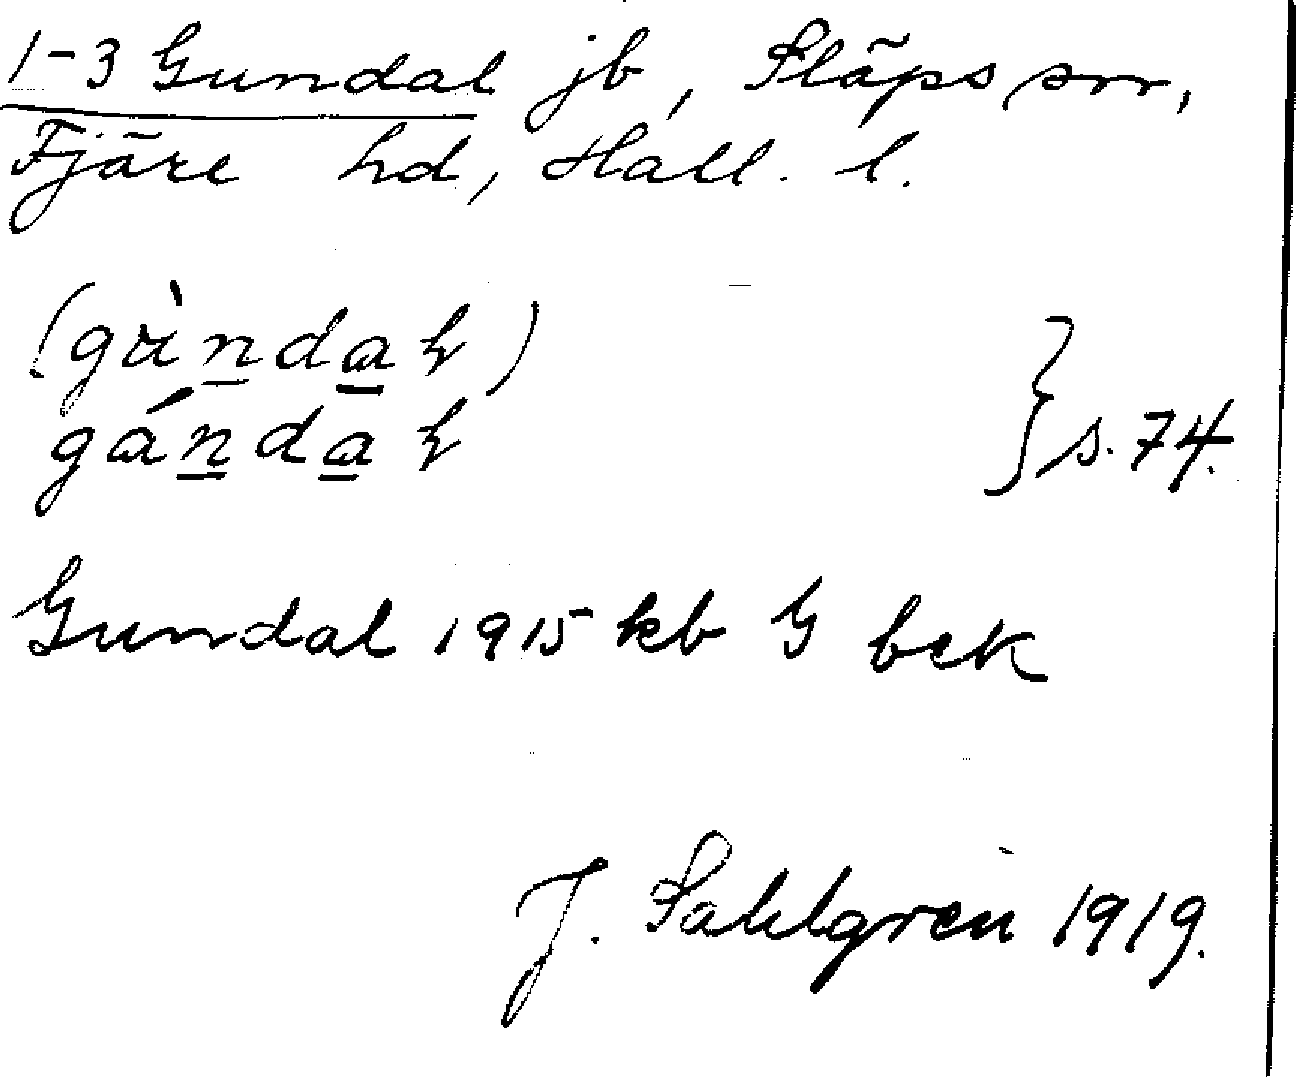 1-3 Gundal jb, Släps sn,
Fjäre hd, Hall. l.
s. 74.
Gundal 1915 kb G bek
J. Sahlgren 1919.